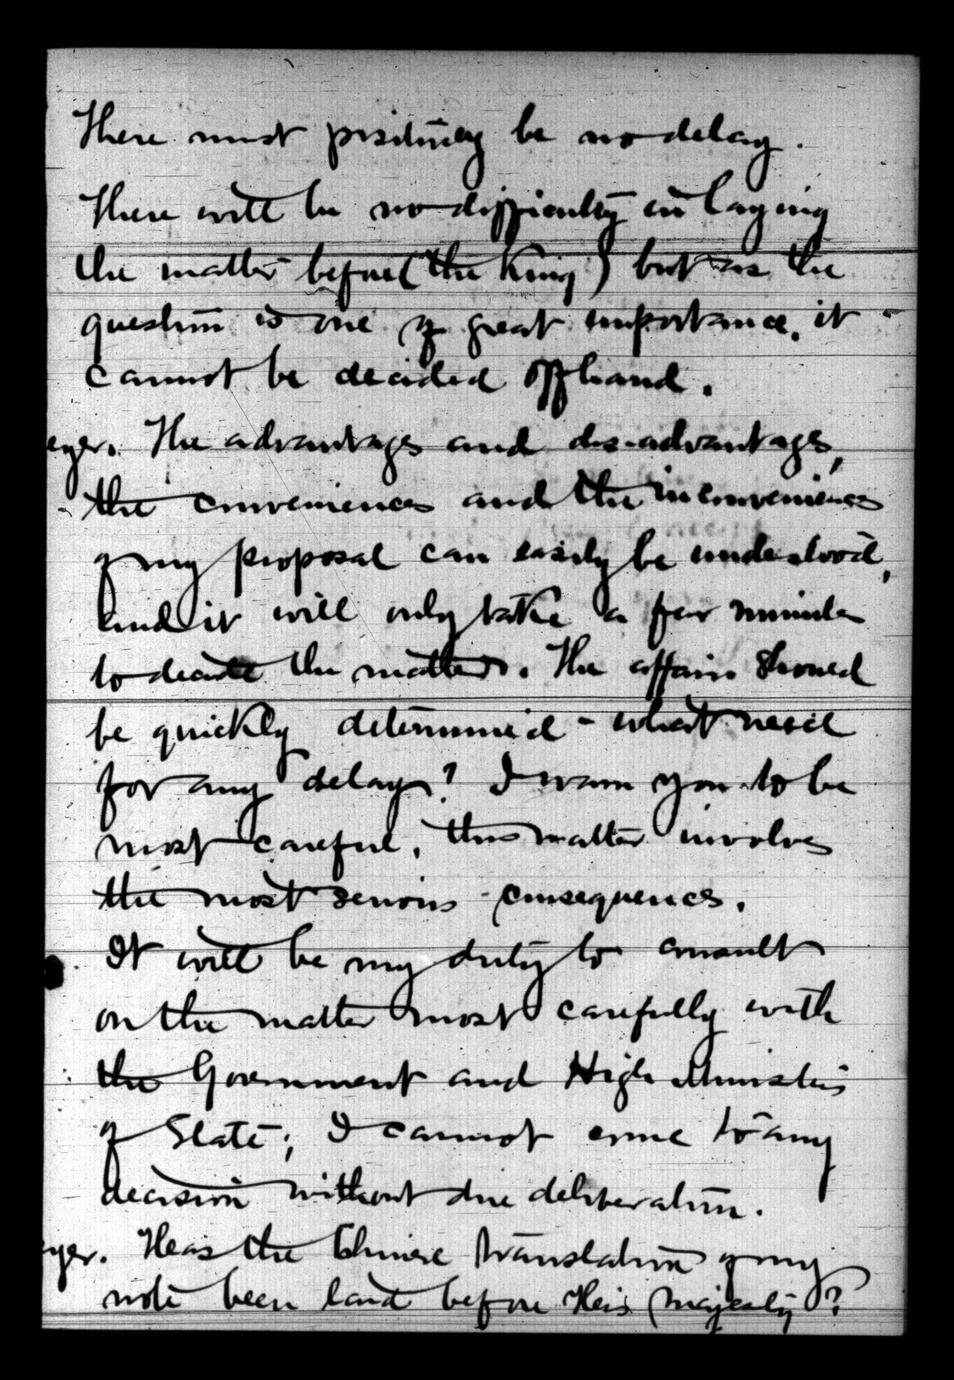 There must positively be no delay.
There will be no difficulty in laying
the matter before (the King) but as the
question is one of great importance, it
cannot be decided offhand.
eyer. The advantages and dis-advantages,
the conveniences and the inconveniences
of my proposal can easily be understood,
and it will only take a few minutes
to decide the matter. The affair should
be quickly determined - what need
for any delay? I warn you to be
most careful, this matter involves
the most serious consequences.
It will be my duty to consult
on the matter most carefully with
the Government and High Ministers
of State; I cannot come to any
decision without due deliberation.
yer. Has the Chinese translation of my
note been laid before His Majesty?